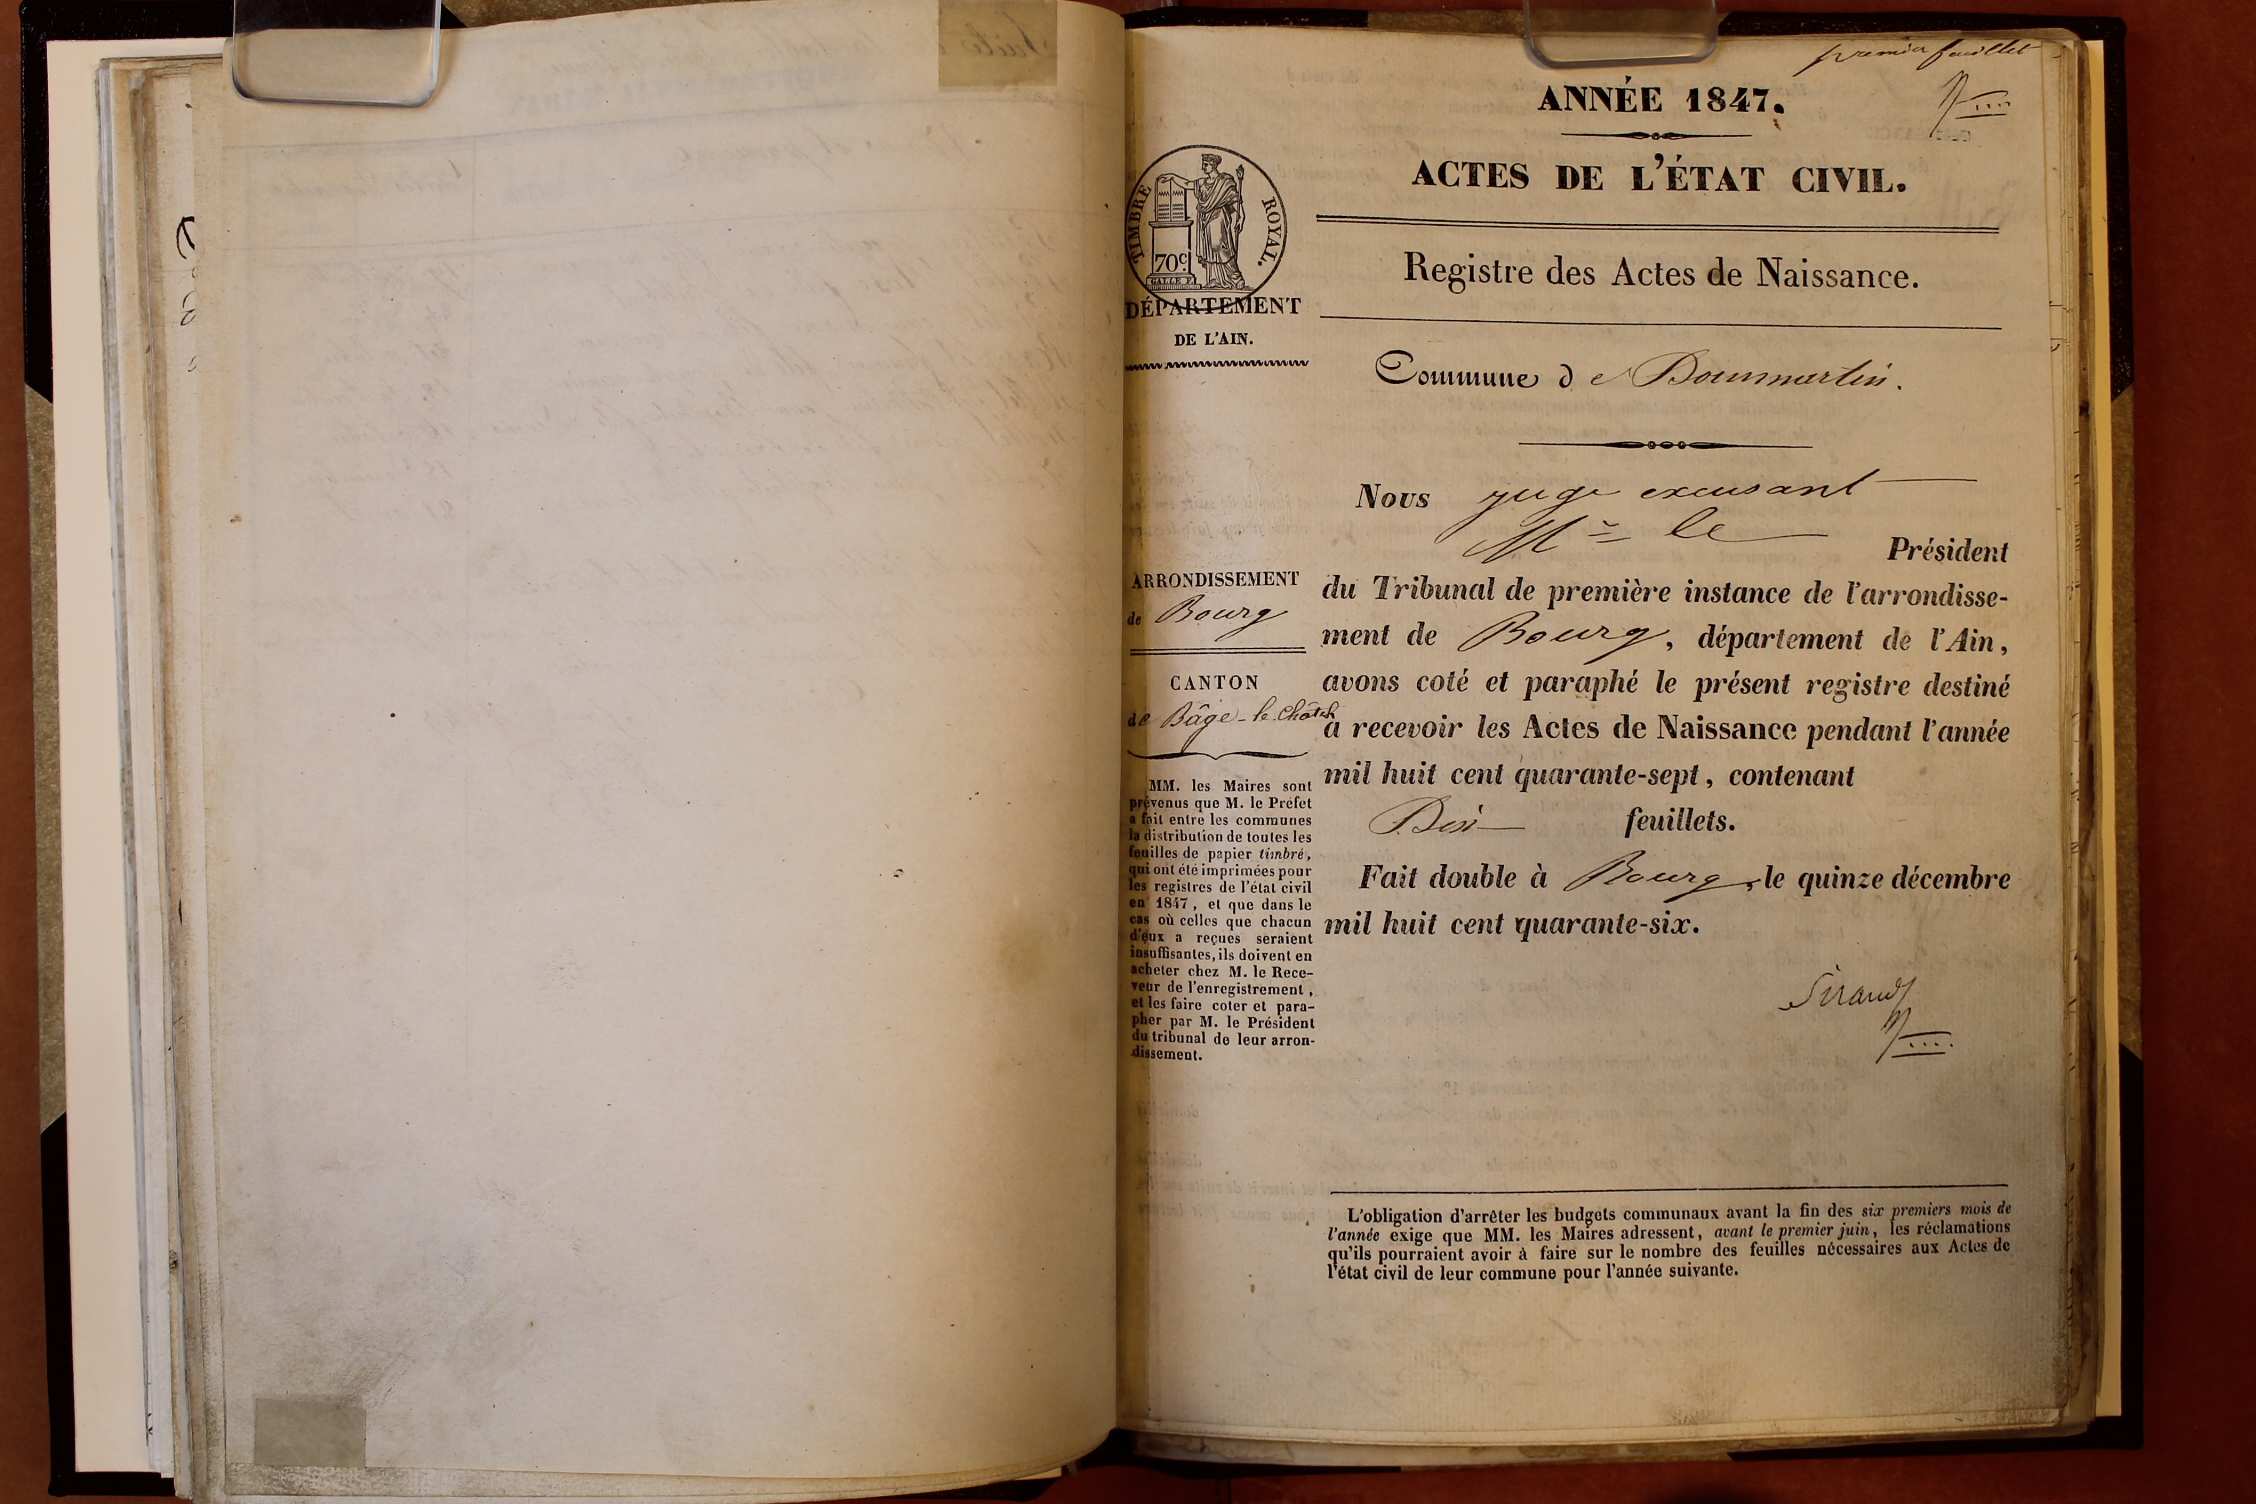 premier feuillet
ANNÉE 1847.
ACTES DE L'ÉTAT CIVIL.
TIMBRE ROYAL.
70c.
DÉPARTEMENT
DE L'AIN.
Registre des Actes de Naissance.
Commune de Dommartin.
Nous juge excusant
Mr le Président
ARRONDISSEMENT
de Bourg
CANTON
de Bâgé-le-Châtel
du Tribunal de première instance de l'arrondisse-
ment de Bourg, département de l'Ain,
avons coté et paraphé le présent registre destiné
à recevoir les Actes de Naissance pendant l'année
mil huit cent quarante-sept, contenant
Dix feuillets.
Fait double à Bourg, le quinze décembre
mil huit cent quarante-six.
Sirand
MM. les Maires sont
prévenus que M. le Préfet
a fait entre les communes
la distribution de toutes les
feuilles de papier timbré,
qui ont été imprimées pour
les registres de l'état civil
en 1847, et que dans le
cas où celles que chacun
d'eux a reçues seraient
insuffisantes, ils doivent en
acheter chez M. le Rece-
veur de l'enregistrement,
et les faire coter et para-
pher par M. le Président
du tribunal de leur arron-
dissement.
L'obligation d'arrêter les budgets communaux avant la fin des six premiers mois de
l'année exige que MM. les Maires adressent, avant le premier juin, les réclamations
qu'ils pourraient avoir à faire sur le nombre des feuilles nécessaires aux Actes de
l'état civil de leur commune pour l'année suivante.